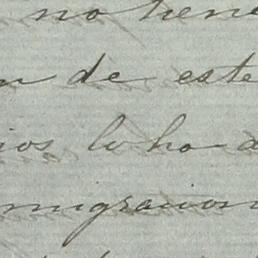 no tiene
n de este
ios lo ha d
migracion